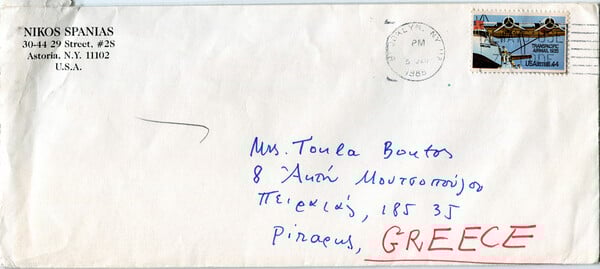 NIKOS SPANIAS
30-44 29 Street, #2S
Astoria, N.Y. 11102
U.S.A.
BROOKLYN, NY
PM
1985
TRANSPACIFIC
AIRMAIL 1935
USAirmail 44
Mrs. Toula Boutos
8 Ακτή Μουτσοπούλου
Πειραιάς, 185 35
Piraeus, GREECE